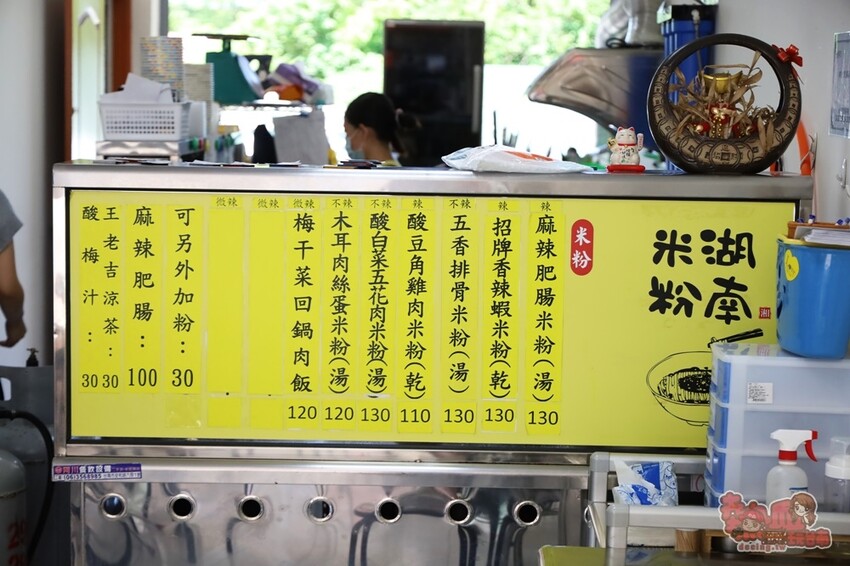 湖南
米粉
湘
米粉
辣
麻辣肥腸米粉(湯)
130
辣
招牌香辣蝦米粉(乾)
130
不辣
五香排骨米粉(湯)
130
辣
酸豆角雞肉米粉(乾)
110
不辣
酸白菜五花肉米粉(湯)
130
不辣
木耳肉絲蛋米粉(湯)
120
微辣
梅干菜回鍋肉飯
120
微辣
微辣
可另外加粉：30
麻辣肥腸：100
王老吉涼茶：30
酸梅汁：30
(06)3568985
dacing.tw